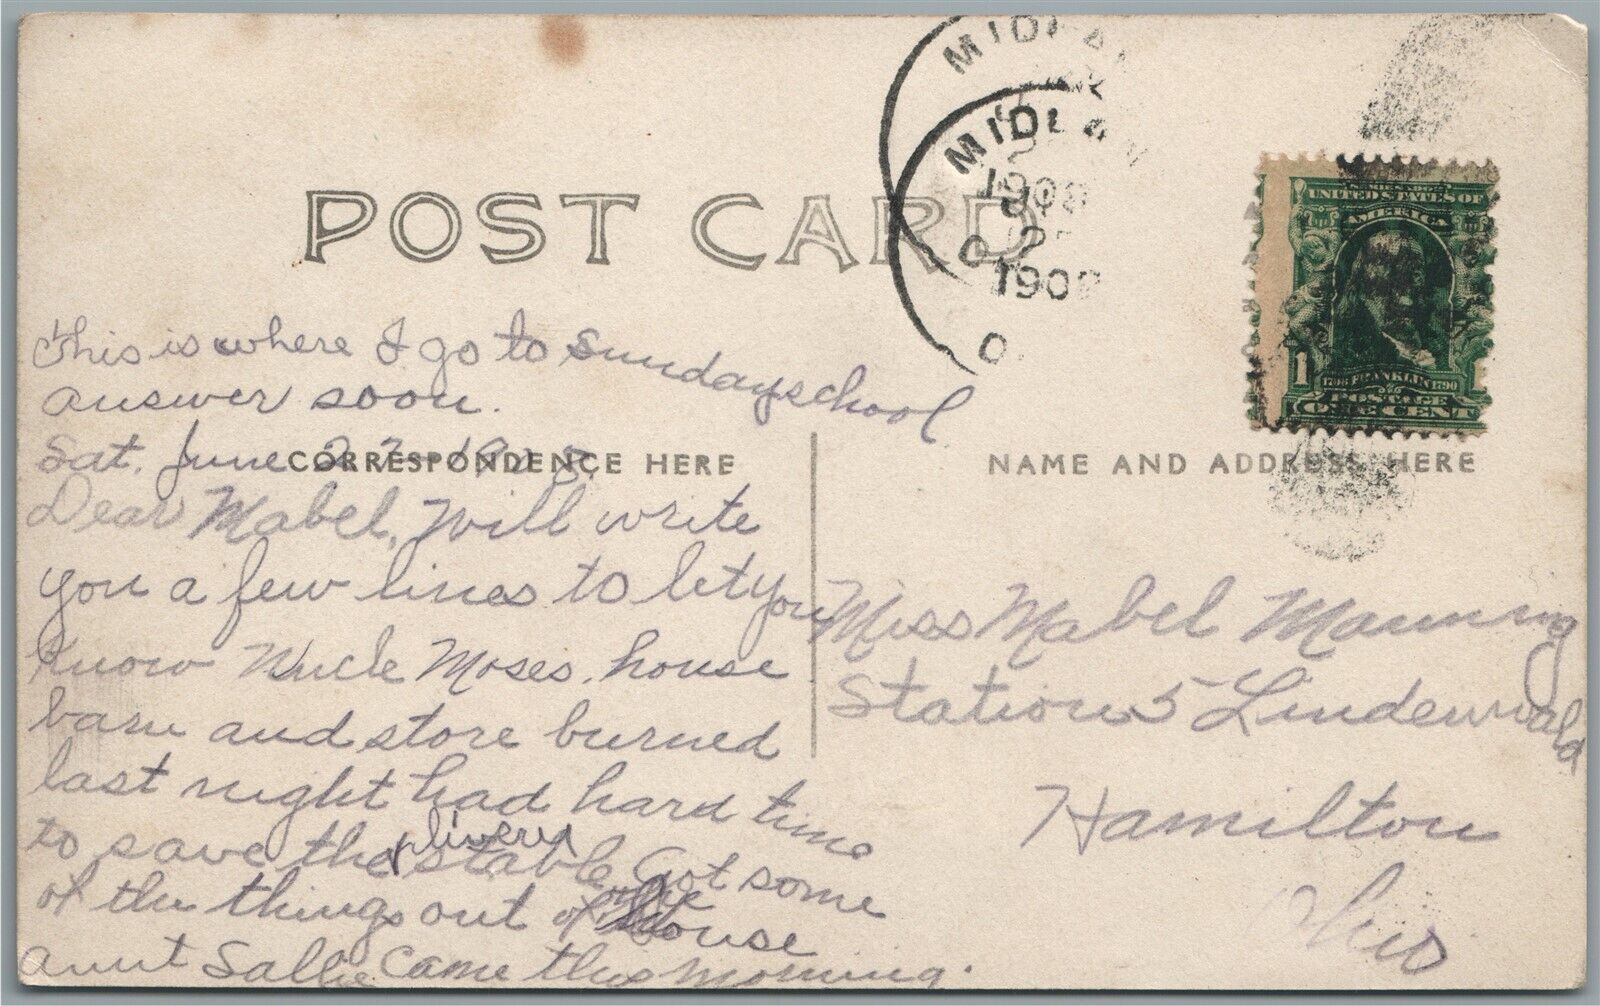 MIDLAN
MIDLAN
1908
27
1908
O.
POST CARD
SERIES 1902
UNITED STATES OF
AMERICA
1
1706 FRANKLIN 1790
POSTAGE
ONE CENT
this is where I go to Sundayschool
answer soon.
CORRESPONDENCE HERE
Sat. June 27-1908.
Dear Mabel, will write
you a few lines to let you
know Uncle Moses. house
barn and store burned
last night had hard time
to save the livery stable Got some
of the things out of the house
aunt Sallie came this morning.
NAME AND ADDRESS HERE
Miss Mabel Manning
Station 5 Lindenwald
Hamilton
Ohio